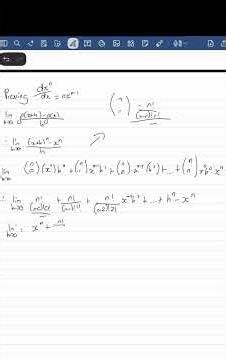 Proving dxⁿ/dx = nxⁿ⁻¹
(n r) = n!/(n-r)!r!
lim h→0 p(x+h)-p(x)/h
: lim h→0 (x+h)ⁿ-xⁿ/h
lim h→0 (n 0)(xⁿ)h⁰ + (n 1)xⁿ⁻¹h¹ + (n 2)xⁿ⁻²(h²) + ... + (n n)x⁰hⁿ xⁿ
: lim h→0 n!/(n-0)!0! + n!/(n-1)!1! + n!/(n-2)!2! xⁿ⁻²h² + ... + hⁿ - xⁿ
lim h→0 : xⁿ + n!